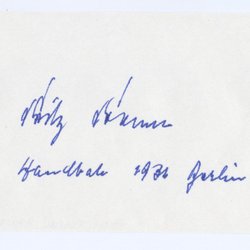 Fritz Fromm
Handball 1936 Berlin